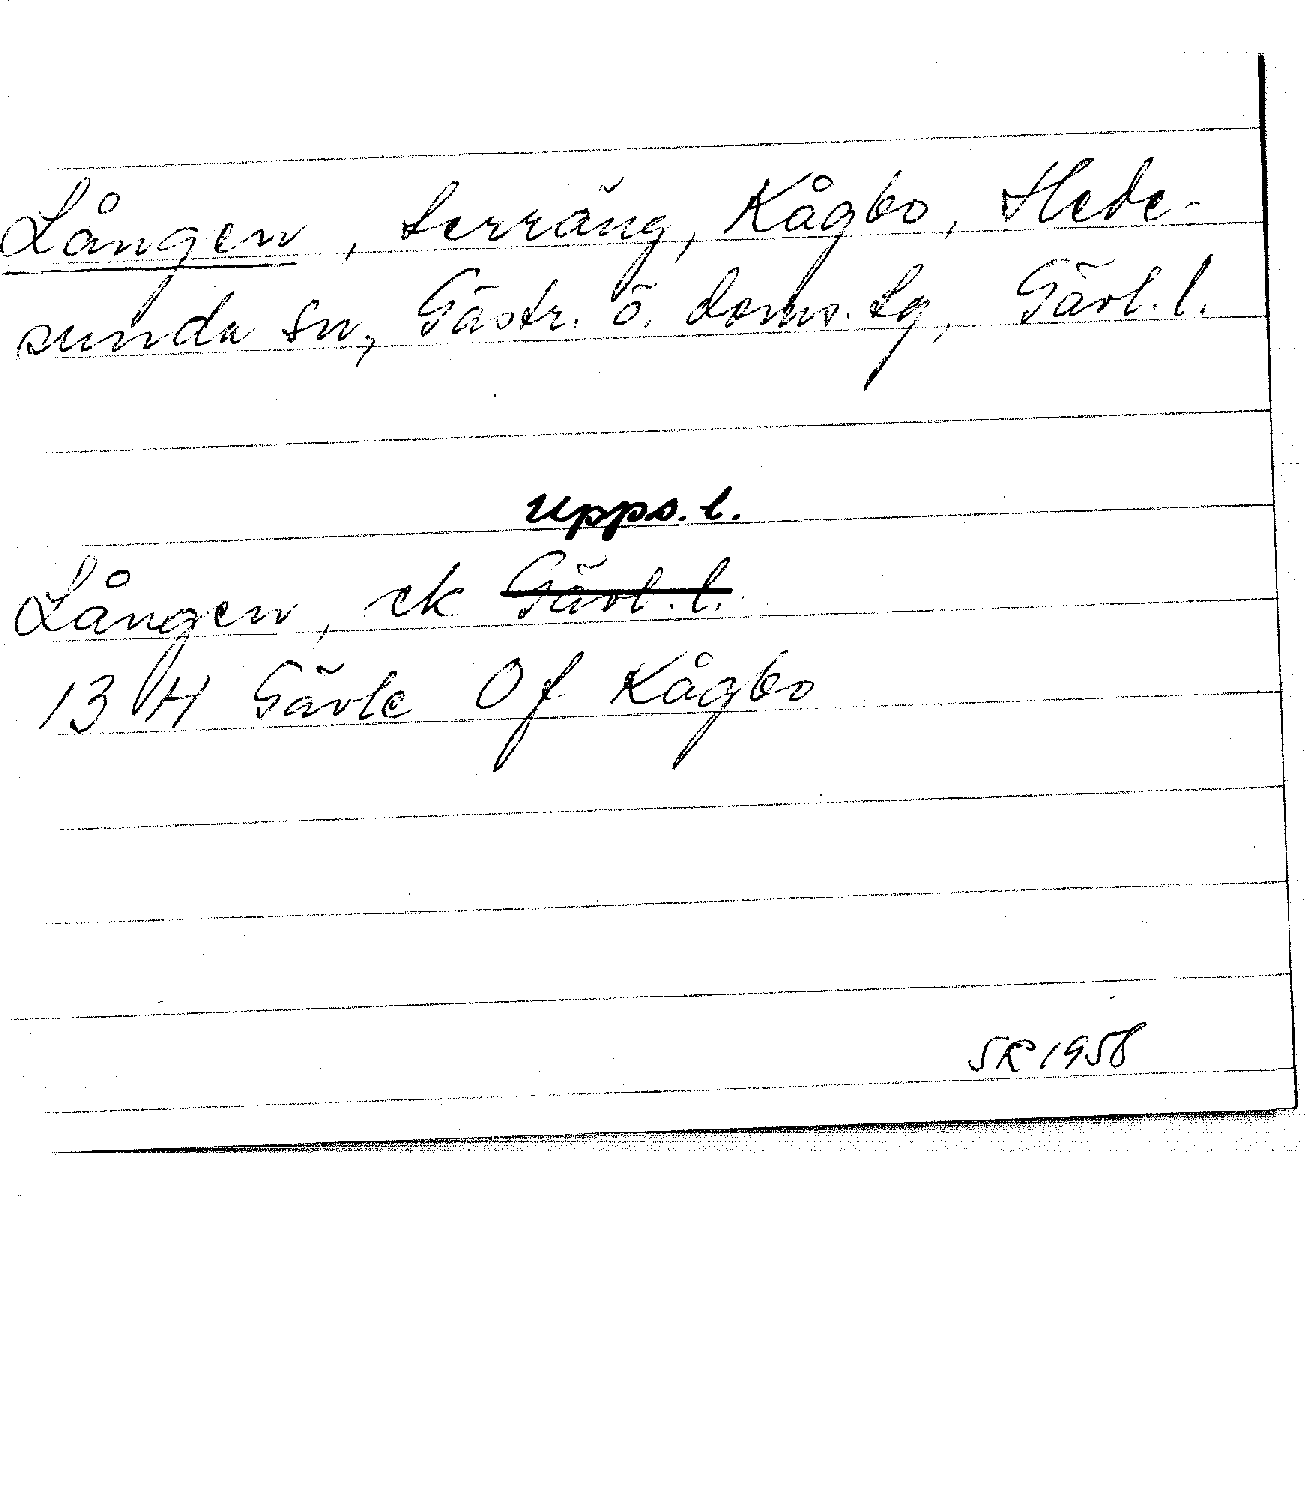 Lången, terräng, Kågbo, Hede-
sunda sn, Gästr. ö. doms. tg, Gävl. l.
Upps. l.
Lången, ek Gävl. l.
13 H Gävle Of Kågbo
SR 1958